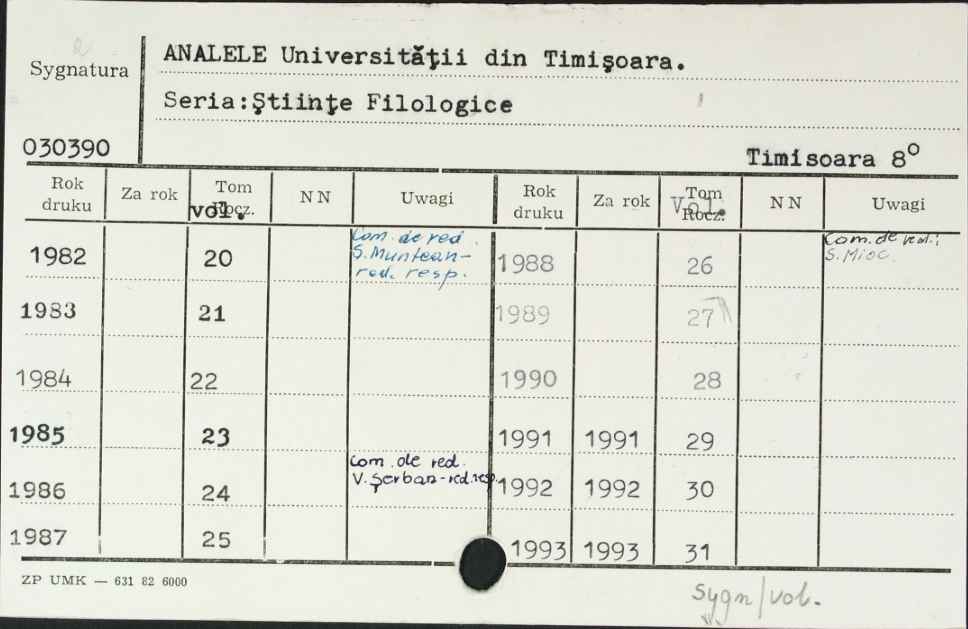 ANALELE Universităţii din Timişoara.
Sygnatura
Seria:Ştiinţe Filologice
030390
Timisoara 8°
Rok druku Za rok Tom Rocz. vol. NN Uwagi Rok druku Za rok Tom Rocz. Vol. NN Uwagi
1982 20 Com. de red. 1988 26 Com. de red.:
S. Muntean- S. Mioc.
red. resp.
1983 21 1989 27
1984 22 1990 28
1985 23 1991 1991 29
1986 24 Com. de red. 1992 1992 30
V. Şerban-red.resp.
1987 25 1993 1993 31
ZP UMK — 631 82 6000
sygn/vol.